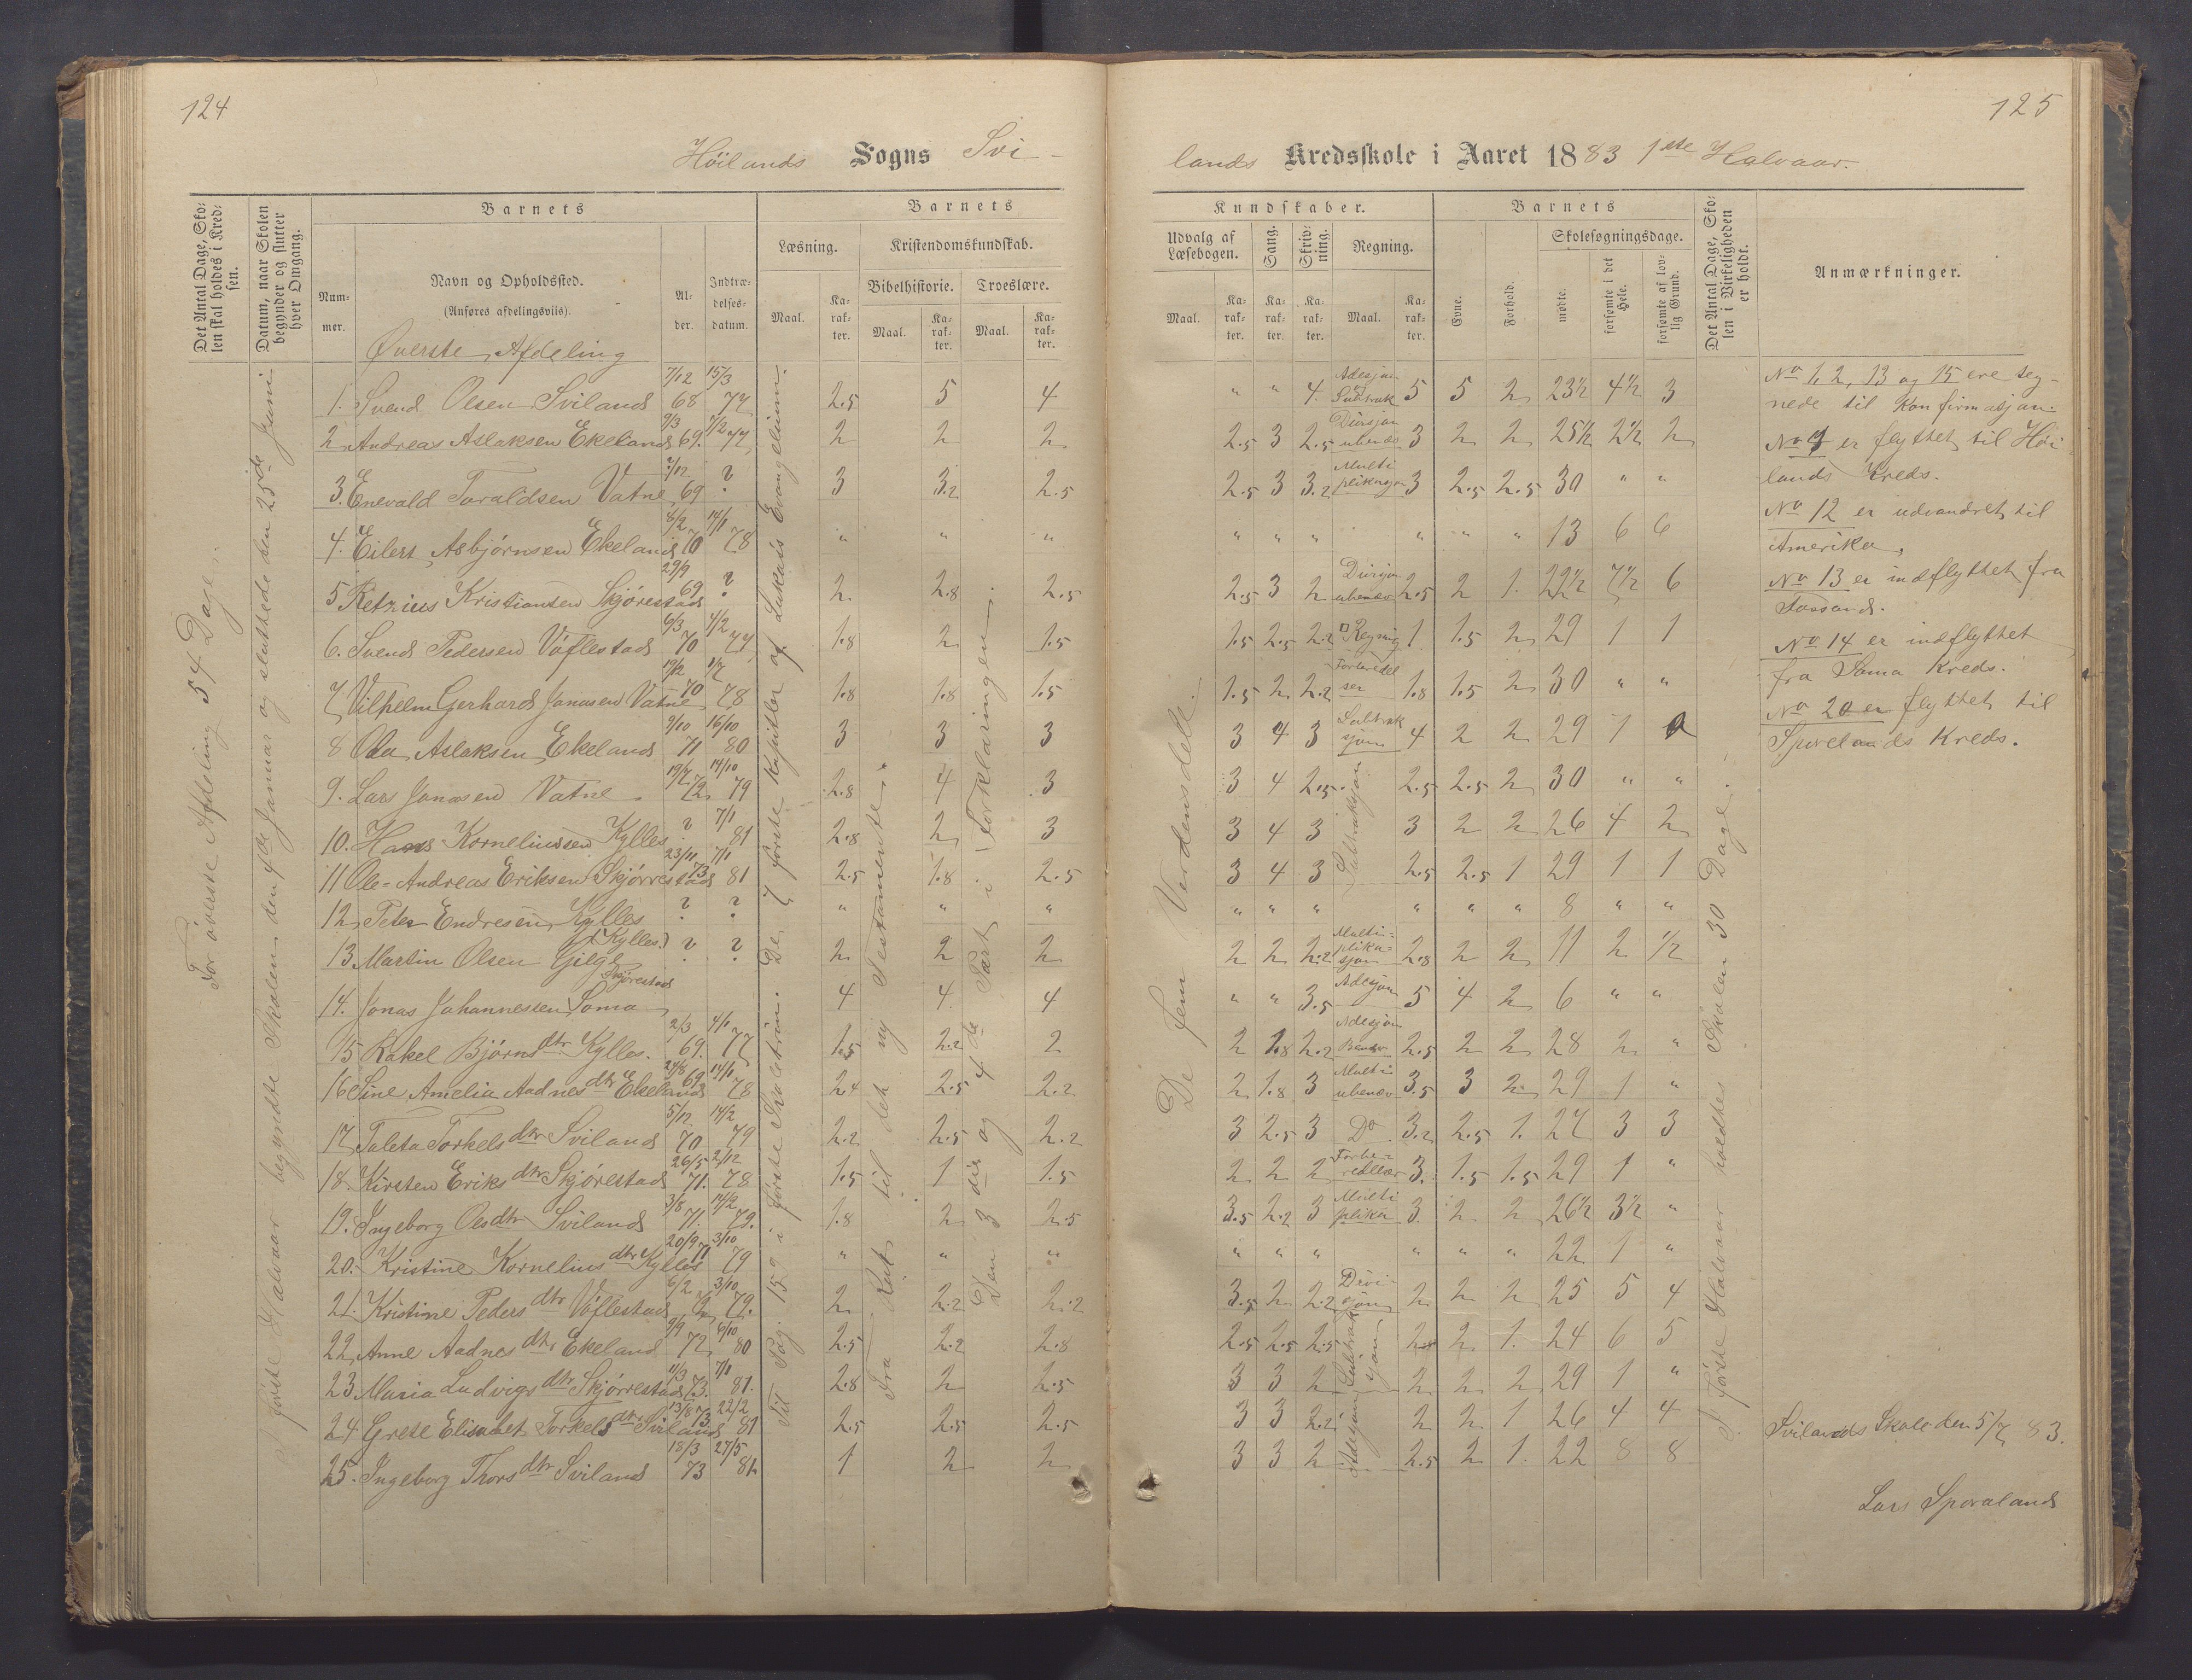 124
125
Höilands Sogns Svi-
lands Kredsskole i Aaret 1883 1ste Halvaar.
Det Antal Dage, Skolen skal holdes i Kredsen.
Datum, naar Skolen begynder og slutter hver Omgang.
Barnets
Nummer.
Navn og Opholdssted.
(Anføres afdelingsviis).
Alder.
Indtrædelsesdatum.
Barnets
Læsning.
Maal.
Karakter.
Kristendomskundskab.
Bibelhistorie.
Maal.
Karakter.
Troeslære.
Maal.
Karakter.
Kundskaber.
Udvalg af Læsebogen.
Maal.
Karakter.
Sang.
Karakter.
Skrivning.
Karakter.
Regning.
Maal.
Karakter.
Barnets
Evne.
Forhold.
Skolesøgningsdage.
mødte.
forsømte i det Hele.
forsømte af lovlig Grund.
Det Antal Dage, Skolen i Virkeligheden er holdt.
Anmærkninger.
For överste Afdeling 54 Dage.
I förste Halvaar begyndte Skolen den 4de Januar og sluttede den 25de Juni
Til Pag. 159 i förste Skoletrin. De 7 förste Kapitler af Lukas's Evangelium.
Fra Rut til det ny Testamente.
Den 3die og 4de Part i Forklaringen.
De fem Verdensdele.
I förste Halvaar holdtes Skolen 30 Dage.
Øverste Afdeling
1. Svend Olsen Sviland 7/12 68 15/3 77 2.5 5 4 " " 4. Adesjon og Subtrak 5 5 2 23½ 4½ 3
2 Andreas Aslaksen Ekeland 9/3 69. 7/2 77 2 2 2 2.5 3 2.5 Divisjon ubenæv 3 2 2 25½ 2½ 2
3. Enevald Toraldsen Vatne 7/12 69 ? 3 3.2 2.5 2.5 3 3.2 Multiplikasjon 3 2.5 2.5 30 " "
4. Eilert Asbjørnsen Ekeland 6/2 70 14/1 78 " " " " " " " " " 13 6 6
5 Retzius Kristiansen Skjørestad 29/9 69 ? 2 2.8 2.5 2.5 3 2 Divisjon ubenæv 2.5 2 1. 22½ 7½ 6
6. Svend Pedersen Vöflestad 6/3 70 4/2 77 1.8 2 1.5 1.5 2.5 2.2 Regning 1 1.5 2 29 1 1
7 Vilhelm Gerhard Jonasen Vatne 19/2 70 1/7 78 1.8 1.8 1.5 1.5 2 2.2 Forberedelser 1.8 1.5 2 30 " "
8 Ola Aslaksen Ekeland 9/10 71 16/10 80 3 3 3 3 4 3 Subtraksjon 4 2 2 29 1 0
9. Lars Jonasen Vatne 19/7 72 14/10 79 2.8 4 3 3 4 2.5 Subtraksjon 2.5 2.5 2 30 " "
10. Hans Korneliussen Kylles ? 7/1 81 2.8 2 3 3 4 3 3 2 2 26 4 2
11 Ole-Andreas Eriksen Skjörrestad 23/11 73 7/1 81 2.5 1.8 2.5 3 4 3 2.5 2.5 1 29 1 1
12 Peter Endresen Kylles ? ? " " " " " " " " " 8 " "
13 Martin Olsen Gilje (Kylles) ? ? 2 2 2 2 2 2.2 Multiplikasjon 2.8 2 2 11 2 ½
14. Jonas Johannessen Soma Skjörestad 4 4. 4 " " 3.5 Adesjon 5 4 2 6 " "
15 Rakel Bjørnsdtr Kylles. 2/3 69. 4/1 77 1.5 2.2 2 2 1.8 2.2 Adesjon Benæv 2.5 2 2 28 2 "
16 Sine Amelia Aadnesdtr Ekeland 24/8 69 14/1 78 2.4 2.5 2.2 2 1.8 3 Multi ubenæv 3.5 3 2 29 1 "
17 Taleta Torkelsdtr Sviland 5/12 70 14/2 79 2.2 2.5 2.2 3 2.5 3 Do 3.2 2.5 1. 27 3 3
18. Kirsten Eriksdtr Skjörestad 26/5 71. 2/12 78 1.5 1 1.5 2 2 2 3. 1.5 1.5 29 1 "
19. Ingeborg Olesdtr Sviland 3/8 71. 14/2 79. 1.8 2 2.5 3.5 2.2 3 Multiplika 3. 2 2 26½ 3½ "
20. Kristine Korneliusdtr Kylles 20/9 71 3/10 79 " " " " " " " " " 22 1 "
21. Kristine Pedersdtr Vöflestad 6/2 72 3/10 79. 2 2.2 2.2 3.5 2 2.2 Divisjon 2 2 2 25 5 4
22 Anne Aadnesdtr Ekeland 9/9 72 6/10 80 2.5 2.2 2.8 2.5 2.5 2.5 Subtraksjon 2.8 2 1. 24 6 5
23. Maria Ludvigsdtr Skjörrestad 11/3 73. 7/1 81. 2.8 2 2.5 3 3 2 2 2 2 29 1 "
24 Grete Elisabet Torkelsdtr Sviland 13/8 73 22/2 81 2.5 2.5 2.5 3 3 2.2 Adesjon 2 2 1 26 4 4
25. Ingeborg Thorsdtr Sviland 18/3 73 27/5 81 1 2 2 3 3 2 2.5 2 1. 22 8 8
No 1, 2, 13 og 15 ere teg-
nede til Konfirmasjon.
No 4 er flyttet til Höi
lands Kreds.
No 12 er udvandret til
Amerika.
No 13 er indflyttet fra
Fossand.
No 14 er indflyttet
fra Soma Kreds.
No 20 er flyttet til
Sporelands Kreds.
Svilands Skole den 5/7 83.
Lars Sporaland